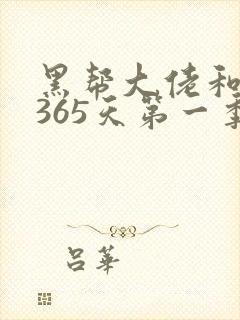 黑帮大佬和
365天第一季
吕华